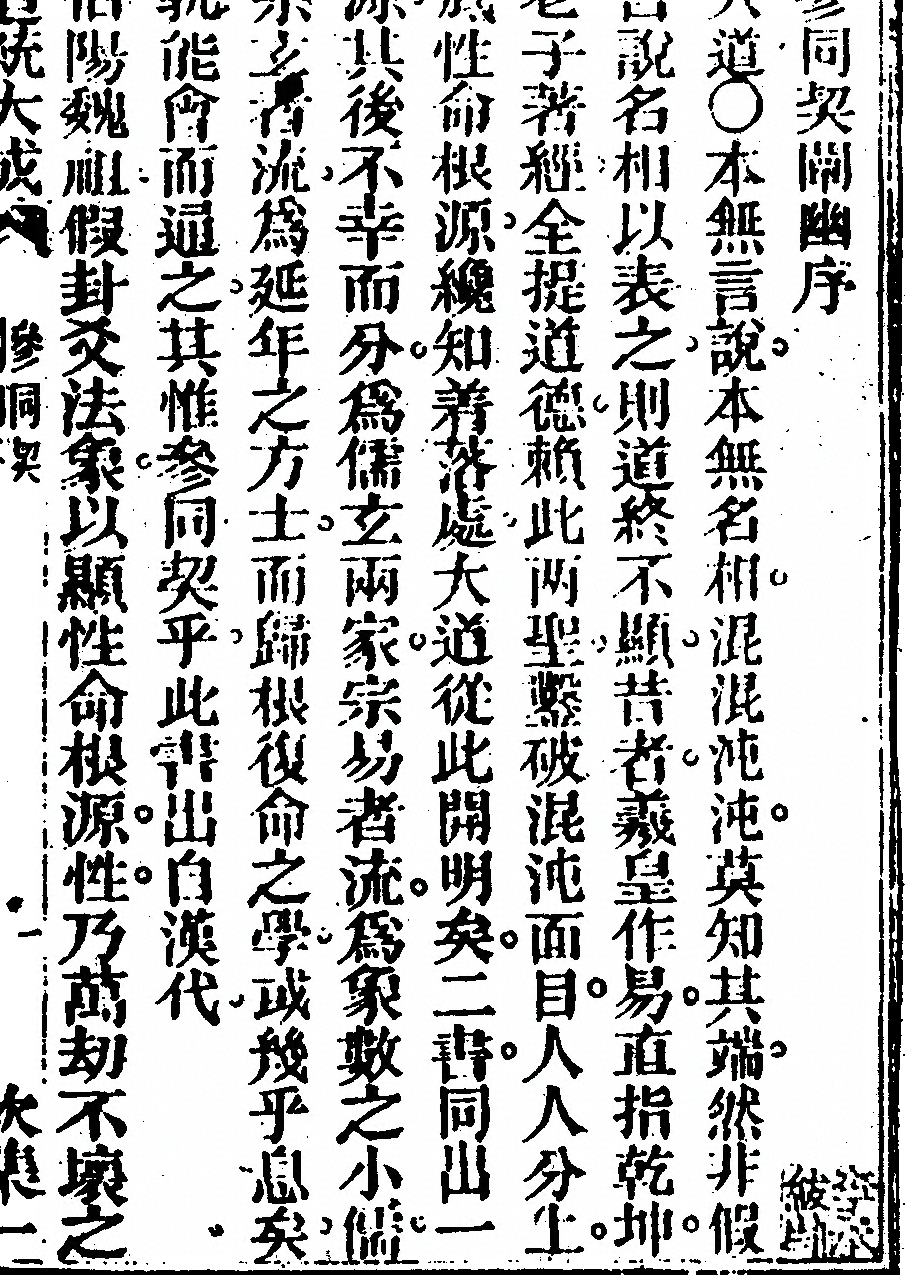 參同契闡幽序
大道〇本無言說本無名相混混沌沌莫知其端然非假
言說名相以表之則道終不顯昔者羲皇作易直指乾坤
老子著經全提道德賴此两聖鑿破混沌面目人人分上
底性命根源纔知着落處大道從此開明矣二書同出一
源其後不幸而分爲儒玄兩家宗易者流爲象數之小儒
宗玄者流爲延年之方士而歸根復命之學或幾乎息矣
孰能會而通之其惟參同契乎此書出自漢代
伯陽魏祖假卦爻法象以顯性命根源性乃萬劫不壞之
道統大成 參同契 一 次集一